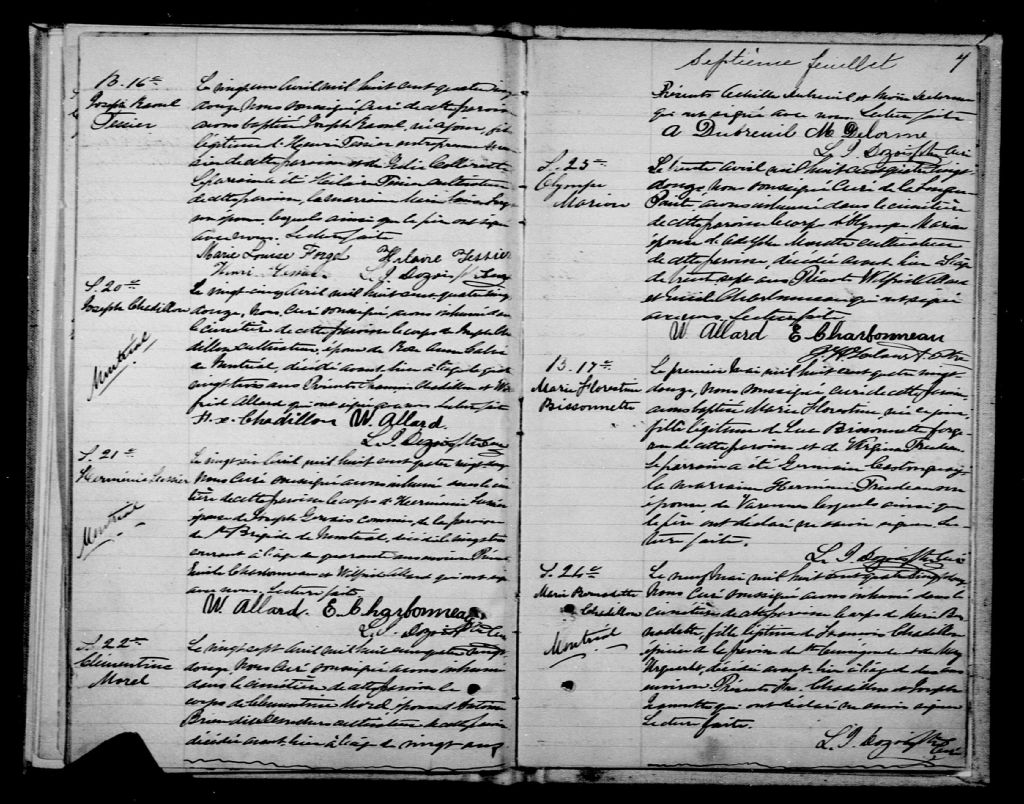 B. 16e
Joseph Raoul
Tessier
Le vingt un Avril mil huit cent quatre vingt
douze, Nous soussigné Curé de cette paroisse
avons baptisé Joseph Raoul, né ce jour, fils
légitime d'Henri Tessier entrepreneur
de cette paroisse et de
Le parrain a été Hilaire Tessier cultivateur
de cette paroisse, la marraine Marie Louise Forget
son épouse, lesquels ainsi que le père ont signé
avec nous. Lecture faite
Marie Louise Forget Hilaire Tessier
Henri Tessier L. J. Dozois Ptre Curé
S. 20e
Joseph Chadillon
Montréal
Le vingt cinq Avril mil huit cent quatre vingt
douze, Nous Curé soussigné avons inhumé dans
le cimetière de cette paroisse le corps de Joseph Cha
dillon cultivateur, époux de Rose Anna
de Montréal, décédé avant hier à l'âge de
vingt ans Présents Chadillon et Wil
frid Allard qui ont signé avec nous Lecture faite
H. x. Chadillon W. Allard.
L. J. Dozois Ptre Curé
S. 21e
Herminie
Montréal
Le vingt six Avril mil huit cent quatre vingt douze
Nous Curé soussigné avons inhumé dans le cime
tière de cette paroisse le corps d'Herminie
épouse de Joseph Gervais commis, de la paroisse
de Ste Brigide de Montréal, décédée le vingt
courant à l'âge de quarante ans environ Présents
Emile Charbonneau et Wilfrid Allard qui ont signé
avec nous. Lecture faite
W. Allard. E. Charbonneau
L. J. Dozois Ptre Curé
S. 22e
Clementine
Morel
Le vingt sept Avril mil huit cent quatre vingt
douze, Nous Curé soussigné avons inhumé
dans le cimetière de cette paroisse le
corps de Clementine Morel épouse d'Antoine
Brien dit Desrochers cultivateur de cette paroisse
décédée avant hier à l'âge de vingt ans
Septième feuillet 7
Présents Achille Dubreuil et Moïse Delorme
qui ont signé avec nous. Lecture faite
A Dubreuil M. Delorme
L. J. Dozois Ptre Curé
S. 23e
Olympe
Marion
Le trente Avril mil huit cent quatre vingt
douze, Nous soussigné Curé de la Longue
Pointe, avons inhumé dans le cimetière
de cette paroisse le corps d'Olympe Marion
épouse d'Adolphe cultivateur
de cette paroisse, décédée avant hier à l'âge
de trente sept ans Présents Wilfrid Allard
et Emile Charbonneau qui ont signé
avec nous. Lecture faite
W. Allard E. Charbonneau
B. 17e
Marie Florentine
Bissonnette
Le premier Mai mil huit cent quatre vingt
douze, Nous soussigné Curé de cette paroisse
avons baptisé Marie Florentine, née ce jour,
fille légitime de Luc Bissonnette forge
ron de cette paroisse et de Virginie Trudeau
Le parrain a été Germain Castonguay
la marraine Herminie Trudeau son
épouse, de Varennes lesquels ainsi que
le père ont déclaré ne savoir signer. Lec
ture faite.
L. J. Dozois Ptre Curé
S. 24e
Marie Bernadette
Chadillon
Montréal
Le neuf Mai mil huit cent quatre vingt douze
Nous Curé soussigné avons inhumé dans le
cimetière de cette paroisse le corps de Marie Ber
nadette, fille légitime de François Chadillon
épicier de la paroisse de Ste Cunégonde et de Mary
Urquhart, décédée avant hier à l'âge de deux ans
environ. Présents Frs. Chadillon et Joseph
qui ont déclaré ne savoir signer
Lecture faite.
L. J. Dozois Ptre Curé